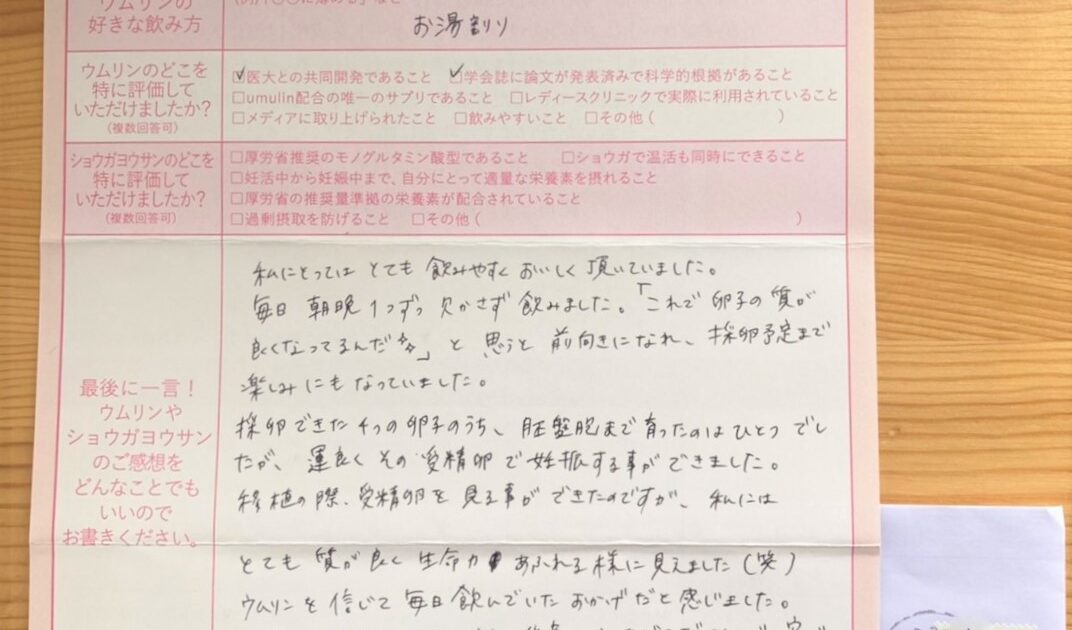 ウムリンの
好きな飲み方
お湯割り
ウムリンのどこを
特に評価して
いただけましたか?
(複数回答可)
☑医大との共同開発であること ☑学会誌に論文が発表済みで科学的根拠があること
□umulin配合の唯一のサプリであること □レディースクリニックで実際に利用されていること
□メディアに取り上げられたこと □飲みやすいこと □その他( )
ショウガヨウサンのどこを
特に評価して
いただけましたか?
(複数回答可)
□厚労省推奨のモノグルタミン酸型であること □ショウガで温活も同時にできること
□妊活中から妊娠中まで、自分にとって適量な栄養素を摂れること
□厚労省の推奨量準拠の栄養素が配合されていること
□過剰摂取を防げること □その他( )
最後に一言!
ウムリンや
ショウガヨウサン
のご感想を
どんなことでも
いいので
お書きください。
私にとっては とても 飲みやすく おいしく 頂いていました。
毎日 朝晩 1つずつ 欠かさず 飲みました。「これで 卵子の 質が
良くなってるんだ✨」と 思うと 前向きになれ、採卵予定まで
楽しみにもなっていました。
採卵できた 4つの 卵子のうち、胚盤胞まで 育ったのは ひとつ でし
たが、運良く その 受精卵 で 妊娠する事ができました。
移植の際、受精卵を 見る事が できたのですが、私には
とても 質が 良く 生命力 あふれる 様に 見えました(笑)
ウムリンを 信じて 毎日 飲んでいた おかげだと 感じました。